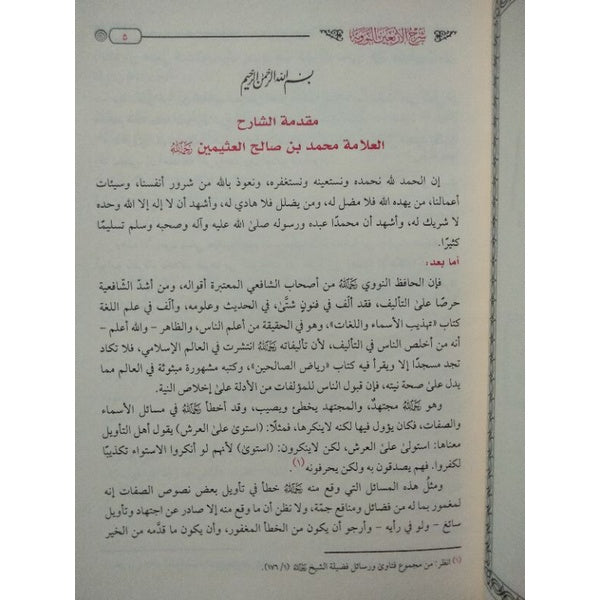 شرح الأربعين النووية
٥
بسم الله الرحمن الرحيم
مقدمة الشارح
العلامة محمد بن صالح العثيمين رحمه الله
إن الحمد لله نحمده ونستعينه ونستغفره، ونعوذ بالله من شرور أنفسنا، وسيئات
أعمالنا، من يهده الله فلا مضل له، ومن يضلل فلا هادي له، وأشهد أن لا إله إلا الله وحده
لا شريك له، وأشهد أن محمدًا عبده ورسوله صلى الله عليه وآله وصحبه وسلم تسليمًا
كثيرًا.
أما بعد:
فإن الحافظ النووي رحمه الله من أصحاب الشافعي المعتبرة أقواله، ومن أشدّ الشّافعية
حرصًا على التأليف، فقد ألّف في فنونٍ شتَّى، في الحديث وعلومه، وألّف في علم اللغة
كتاب «تهذيب الأسماء واللغات»، وهو في الحقيقة من أعلم الناس، والظاهر – والله أعلم –
أنه من أخلص الناس في التأليف، لأن تأليفاته رحمه الله انتشرت في العالم الإسلامي، فلا تكاد
تجد مسجدًا إلا ويقرأ فيه كتاب «رياض الصالحين»، وكتبه مشهورة مبثوثة في العالم مما
يدل على صحة نيته، فإن قبول الناس للمؤلفات من الأدلة على إخلاص النية.
وهو رحمه الله مجتهدٌ، والمجتهد يخطئ ويصيب، وقد أخطأ رحمه الله في مسائل الأسماء
والصفات، فكان يؤول فيها لكنه لاينكرها، فمثلًا: (استوى على العرش) يقول أهل التأويل
معناها: استولى على العرش، لكن لاينكرون: (استوى) لأنهم لو أنكروا الاستواء تكذيبًا
لكفروا. فهم يصدقون به ولكن يحرفونه(١).
ومثلُ هذه المسائل التي وقع منه رحمه الله خطأ في تأويل بعض نصوص الصفات إنه
لمغمور بما له من فضائل ومنافع جمّة، ولا نظن أن ما وقع منه إلا صادر عن اجتهاد وتأويل
سائغ – ولو في رأيه – وأرجو أن يكون من الخطأ المغفور، وأن يكون ما قدّمه من الخير
(١) انظر: من مجموع فتاوى ورسائل فضيلة الشيخ رحمه الله (١/ ١٧٦).